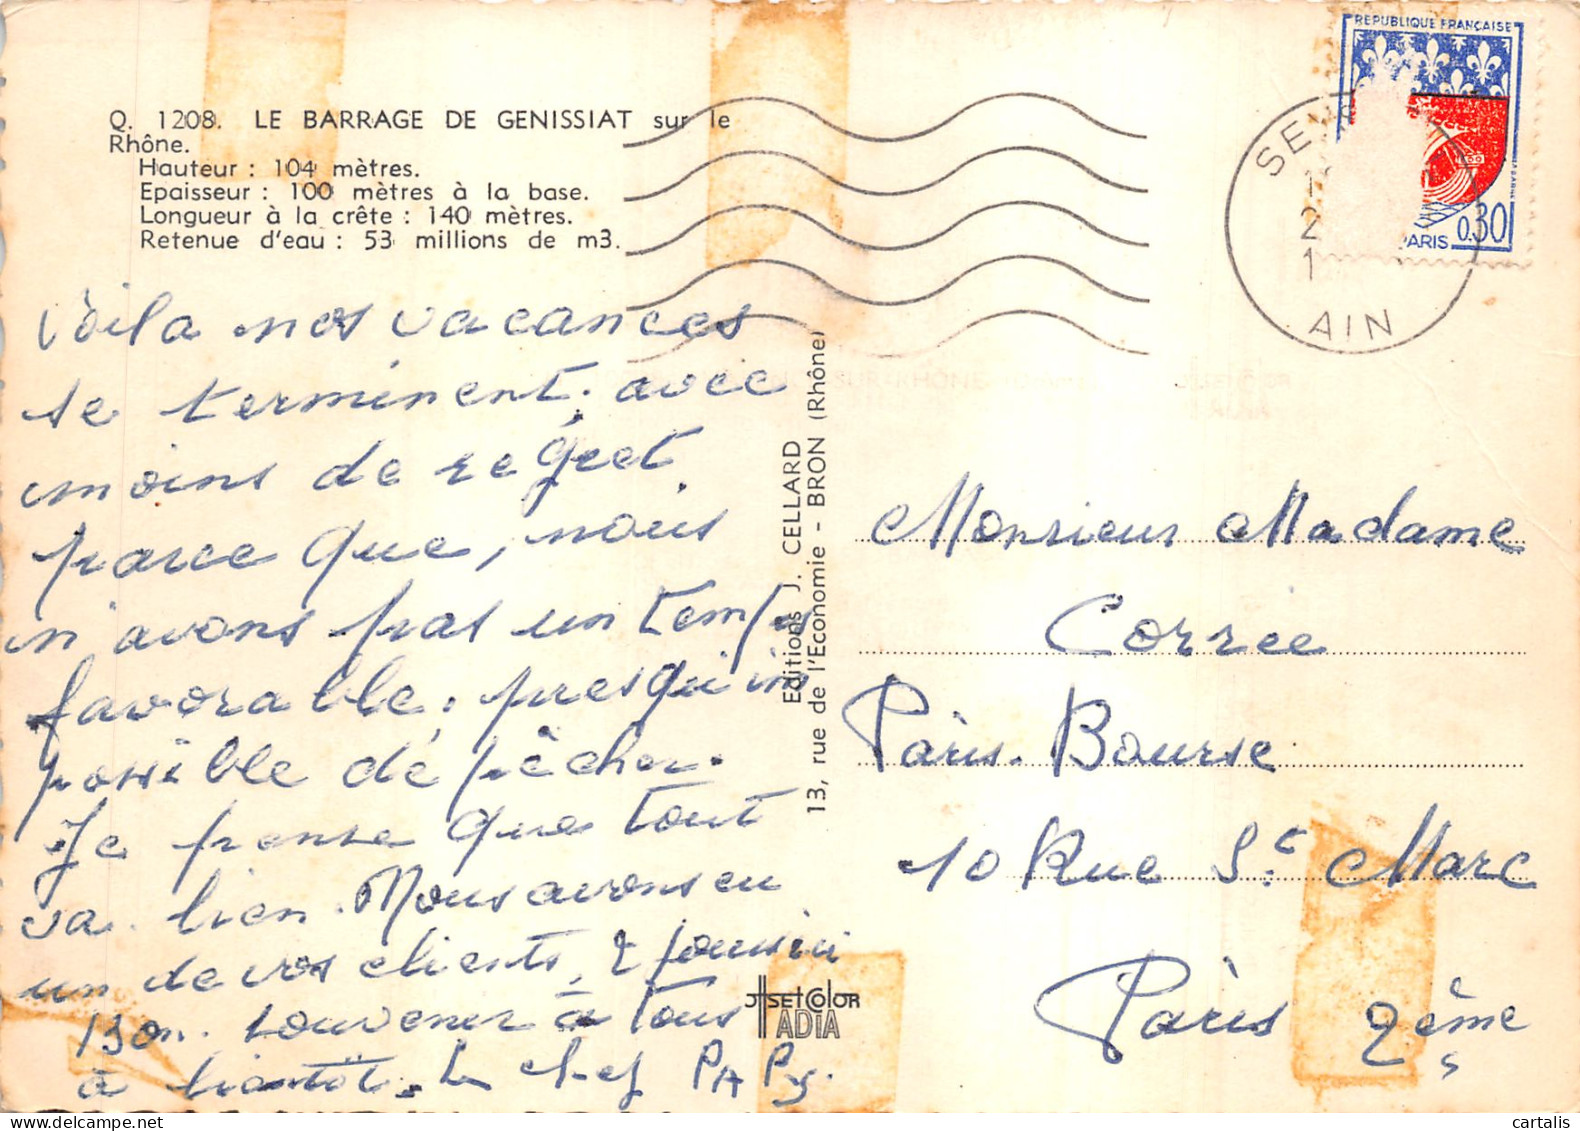 Q. 1208. LE BARRAGE DE GENISSIAT sur le
Rhône.
Hauteur : 104 mètres.
Epaisseur : 100 mètres à la base.
Longueur à la crête : 140 mètres.
Retenue d'eau : 53 millions de m3.
REPUBLIQUE FRANÇAISE
PARIS 0.30
AIN
Voila nos vacances
se terminent. avec
moins de regret
parce que, nous
n'avons pas un temps
favorable. presqu'im
possible de pêcher.
Je pense que tout
va. bien. Nous avons eu
un de vos clients,
Bon. souvenir à Tous
à bientôt. Le chef PAPy.
Editions J. CELLARD
13, rue de l'Economie - BRON (Rhône)
OFFSET COLOR
ADIA
Monsieur Madame
Corrée
Paris. Bourse
10 Rue St. Marc
Paris 2ème
cartalis